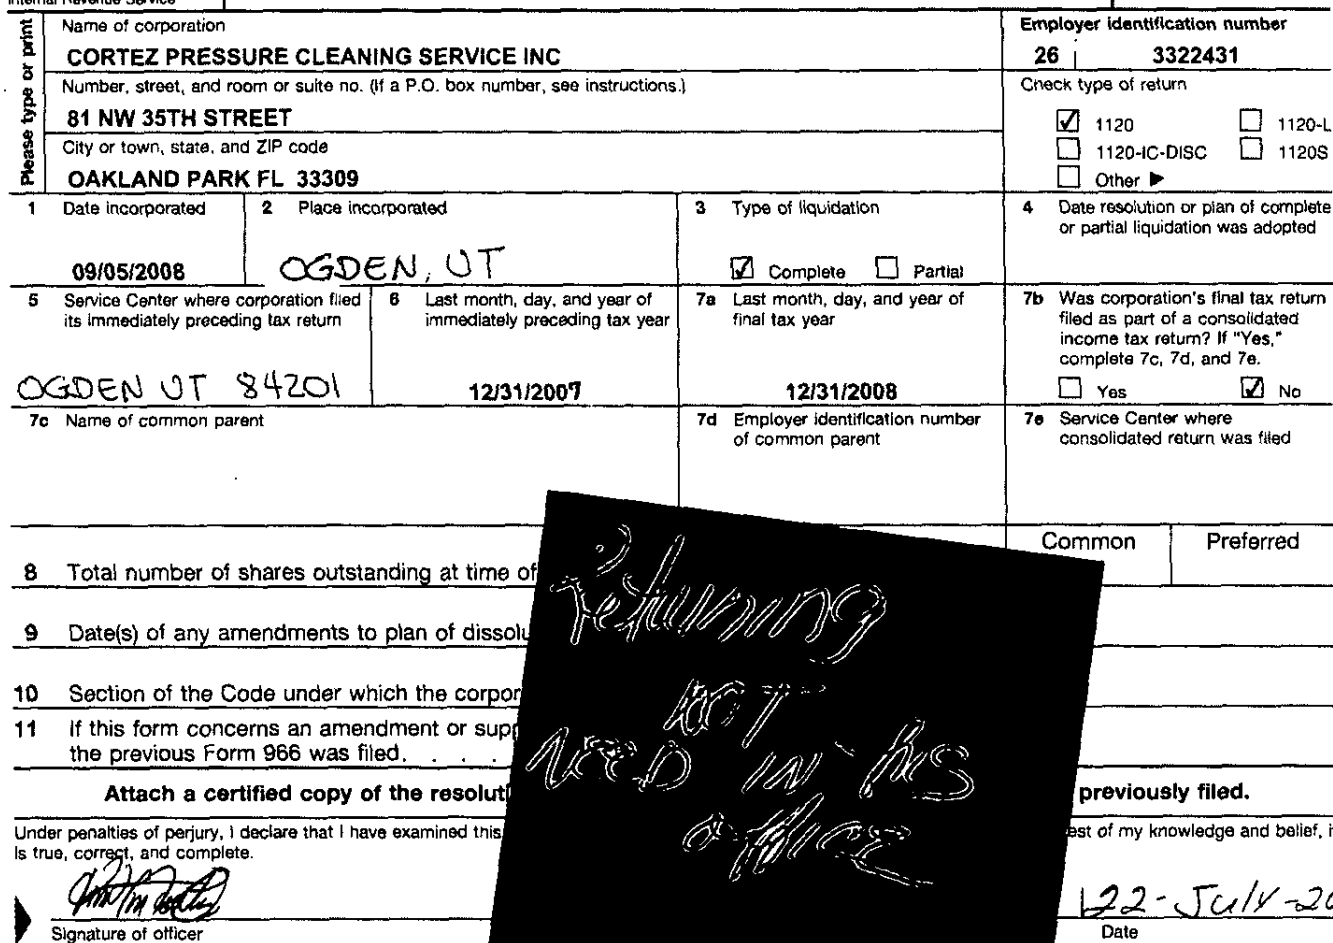 Internal Revenue Service
Please type or print
Name of corporation
CORTEZ PRESSURE CLEANING SERVICE INC
Employer identification number
26 3322431
Number, street, and room or suite no. (If a P.O. box number, see instructions.)
81 NW 35TH STREET
City or town, state, and ZIP code
OAKLAND PARK FL 33309
Check type of return
1120 1120-L
1120-IC-DISC 1120S
Other ►
1 Date incorporated
09/05/2008
2 Place incorporated
OGDEN, UT
3 Type of liquidation
Complete Partial
4 Date resolution or plan of complete
or partial liquidation was adopted
5 Service Center where corporation filed
its immediately preceding tax return
OGDEN UT 84201
6 Last month, day, and year of
immediately preceding tax year
12/31/2007
7a Last month, day, and year of
final tax year
12/31/2008
7b Was corporation's final tax return
filed as part of a consolidated
income tax return? If "Yes,"
complete 7c, 7d, and 7e.
Yes No
7c Name of common parent
7d Employer identification number
of common parent
7e Service Center where
consolidated return was filed
Common Preferred
8 Total number of shares outstanding at time of
9 Date(s) of any amendments to plan of dissolu
10 Section of the Code under which the corpor
11 If this form concerns an amendment or supp
the previous Form 966 was filed. . . .
Returning
NOT
IN
office
Attach a certified copy of the resolut
previously filed.
Under penalties of perjury, I declare that I have examined this
est of my knowledge and belief, i
is true, correct, and complete.
22-July-20
Signature of officer
Date